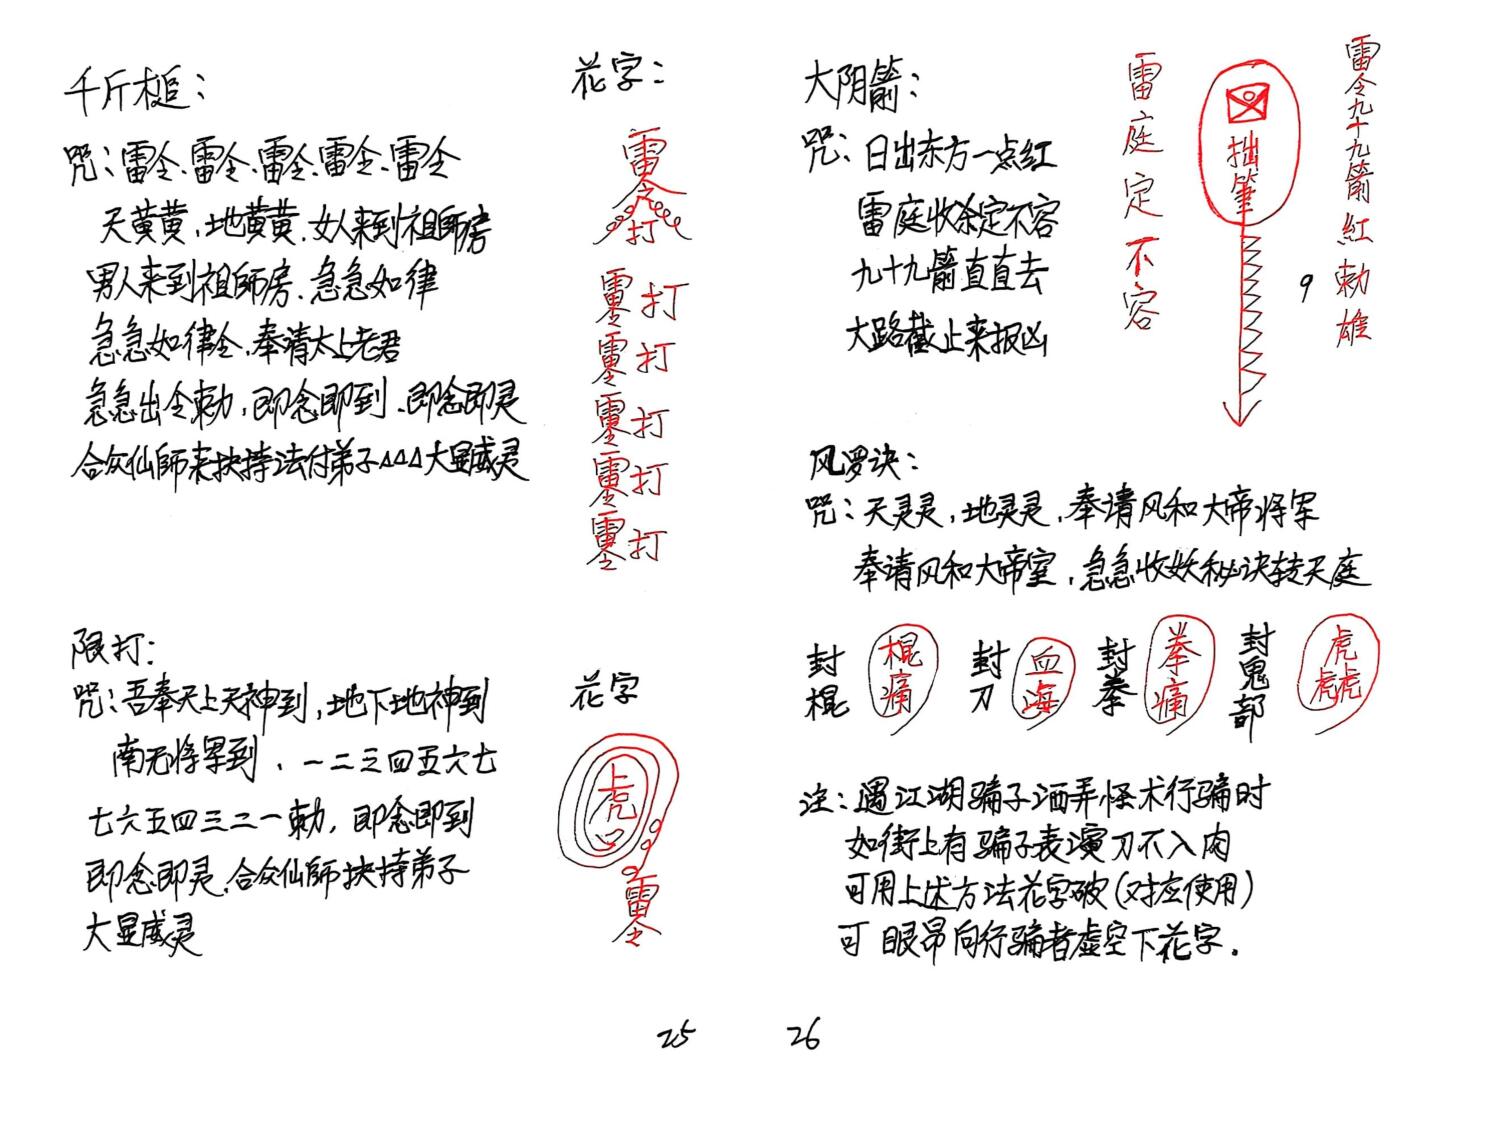 千斤槌：
咒：雷令、雷令、雷令、雷令、雷令
天黄黄，地黄黄、女人来到祖師房
男人来到祖師房、急急如律
急急如律令，奉请太上老君
急急出令勅，即念即到、即念即灵
合众仙師来扶持法付弟子△△△大显威灵
花字：
雷令
打
雷令打
雷令打
雷令打
雷令打
雷令打
限打：
咒：吾奉天上天神到，地下地神到
南无将军到、一二三四五六七
七六五四三二一勅，即念即到
即念即灵、合众仙師扶持弟子
大显威灵
花字
上虎
雷令
25
大阴箭：
咒：日出东方一点红
雷庭收余定不容
九十九箭直直去
大路截止来报凶
雷庭定不容
拙筆
雷令九十九箭紅勅雄
风罗诀：
咒：天灵灵，地灵灵，奉请风和大帝将军
奉请风和大帝室，急急收妖秘诀转天庭
封棍
棍痛
封刀
血海
封拳
拳痛
封鬼部
虎虎虎
注：遇江湖骗子洒弄怪术行骗时
如街上有骗子表演刀不入肉
可用上述方法花字破（对应使用）
可眼昂向行骗者虚空下花字.
26